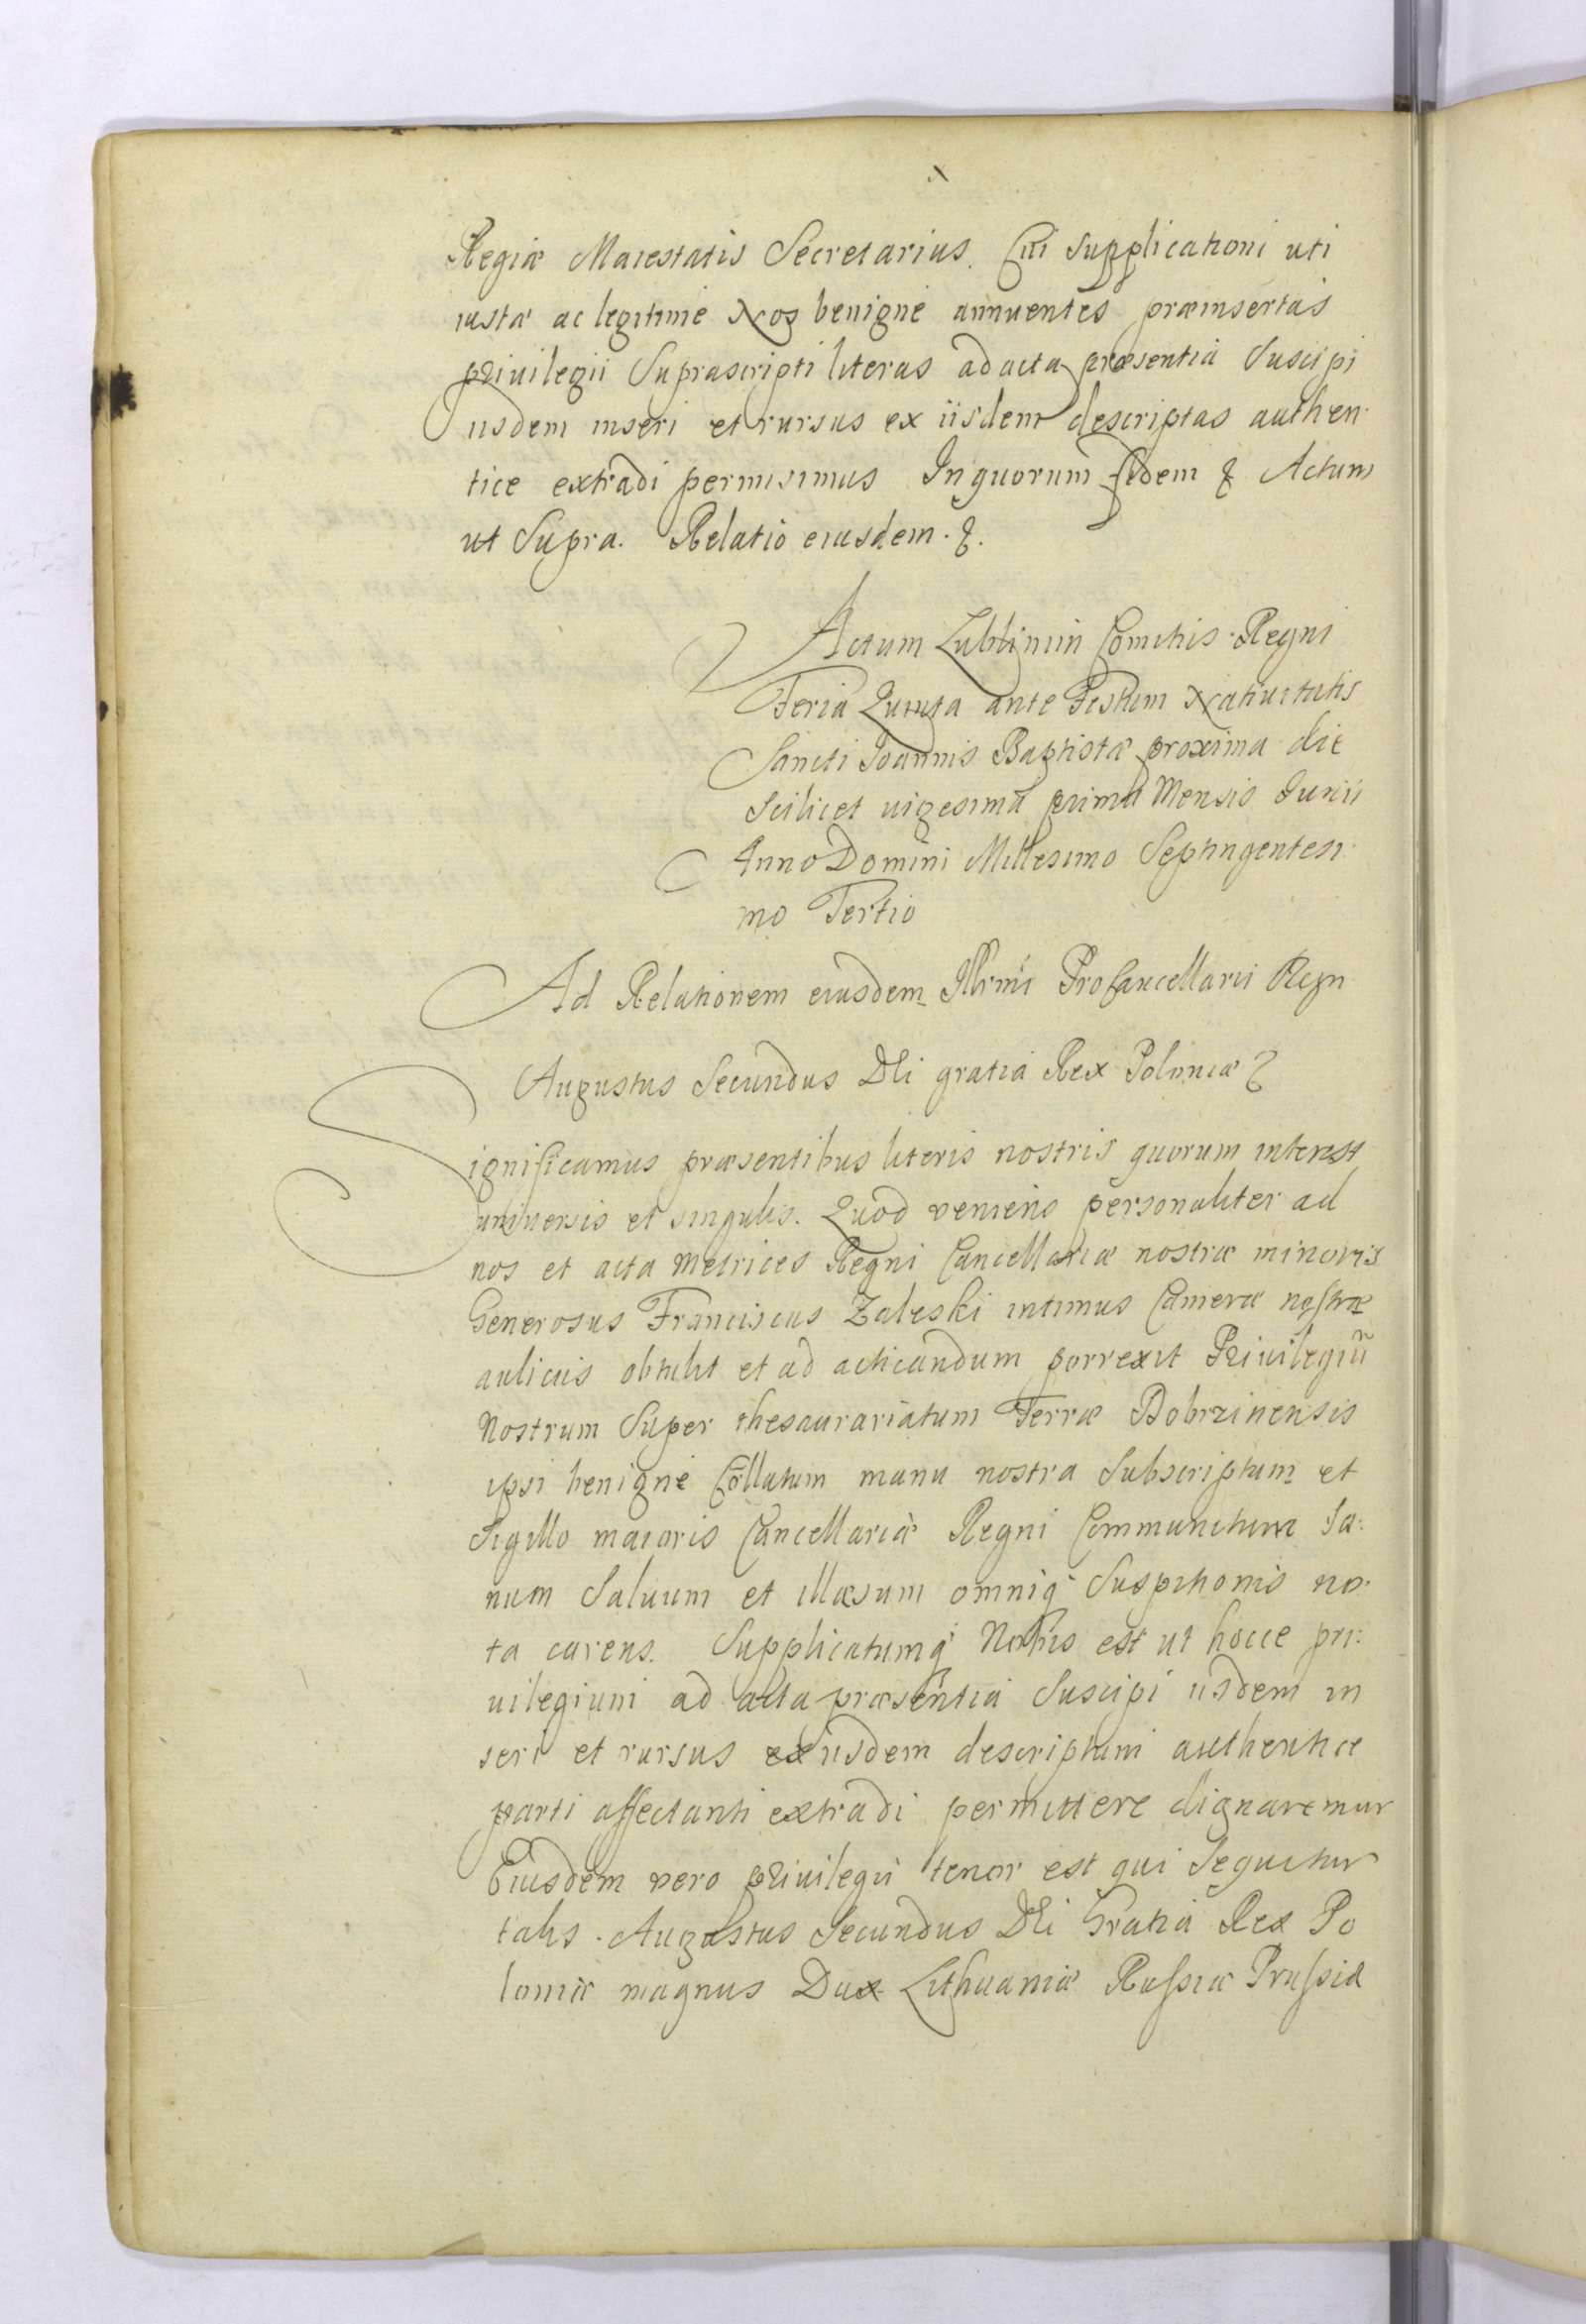 Regiæ Maiestatis Secretarius. Cui Supplicationi uti
iustæ ac legitimè Nos benignè annuentes præinsertas
privilegii Suprascripti literas ad acta præsentia Suscipi
iisdem inseri et rursus ex iisdem descriptas authen
tice extradi permisimus In quorum fidem & Actum
ut Supra. Relatio eiusdem. &.
Actum Lublini in Comitiis Regni
Feria Quinta ante Festum Natiuitatis
Sancti Joannis Baptistæ proxima die
Scilicet uigesima prima Mensis Junii
Anno Domini Millesimo Septingentesi
mo Tertio
Ad Relationem eiusdem Illrmi ProCancellarii Regn
Augustus Secundus DEi gratia Rex Poloniæ &
Significamus præsentibus literis nostris quorum interest
uniuersis et singulis. Quod veniens personaliter ad
nos et acta Metrices Regni Cancellariæ nostræ minoris
Generosus Franciscus Zaleski intimus Cameræ nostræ
aulicus obtulit et ad acticandum porrexit Priuilegiũ
Nostrum Super thesaurariatum Terræ Dobrzinensis
ipsi benignè Collatum manu nostra Subscriptum et
Sigillo maioris Cancellariæ Regni Communitum Sa:
num Saluum et illæsum omniq Suspitionis no:
ta carens. Supplicatumq Nobis est ut hocce pri:
uilegium ad acta præsentia Suscipi iisdem in
seri et rursus ex iisdem descriptum authentice
parti affectanti extradi permittere dignaremur
Eiusdem vero priuilegii tenor est qui Sequitur
talis. Augustus Secundus DEi Gratia Rex Po
loniæ magnus Dux Lithuaniæ Russiæ Prussiæ